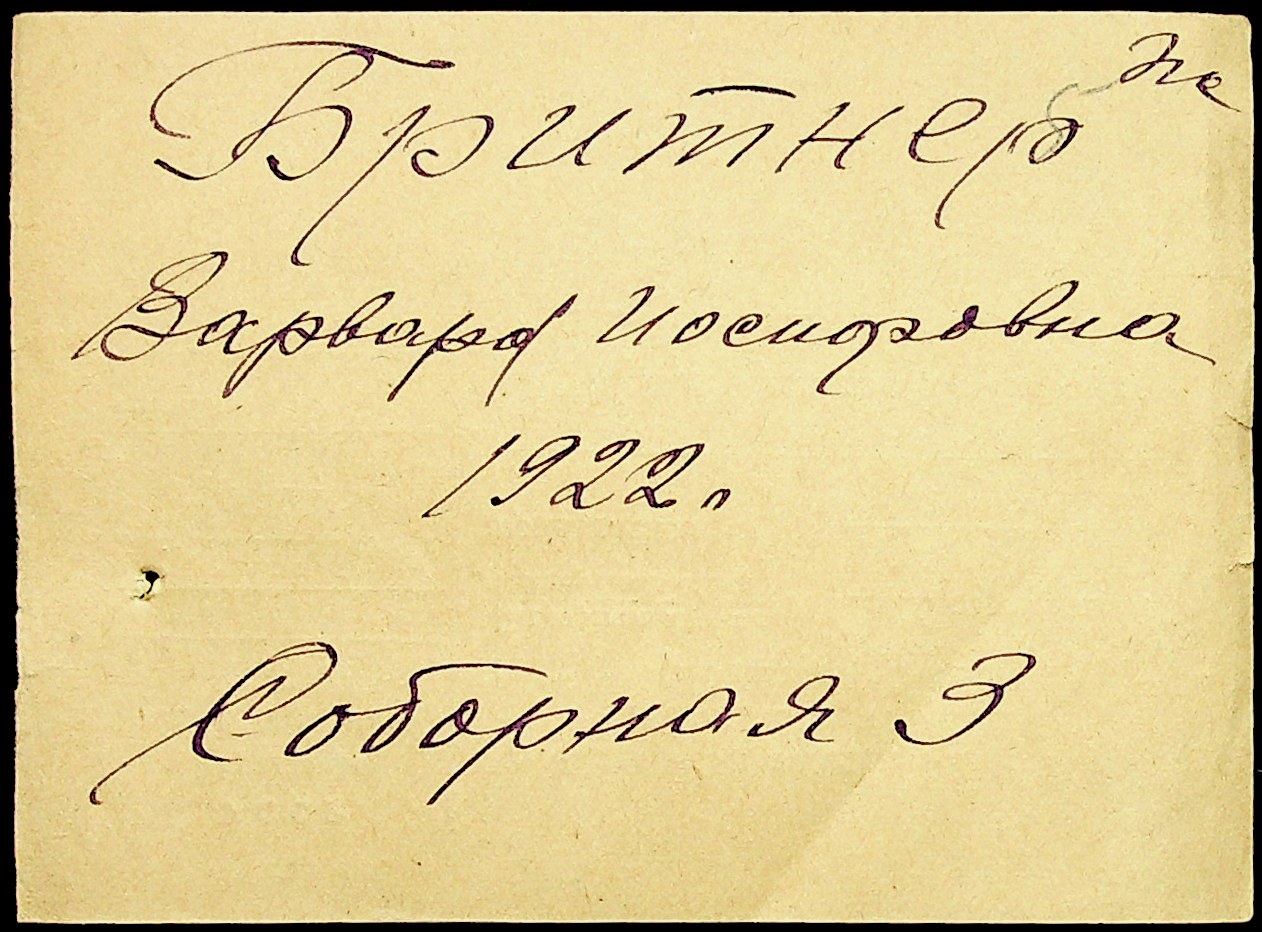 Бритнер
Варвара Иосифовна
1922 г
Соборная 3